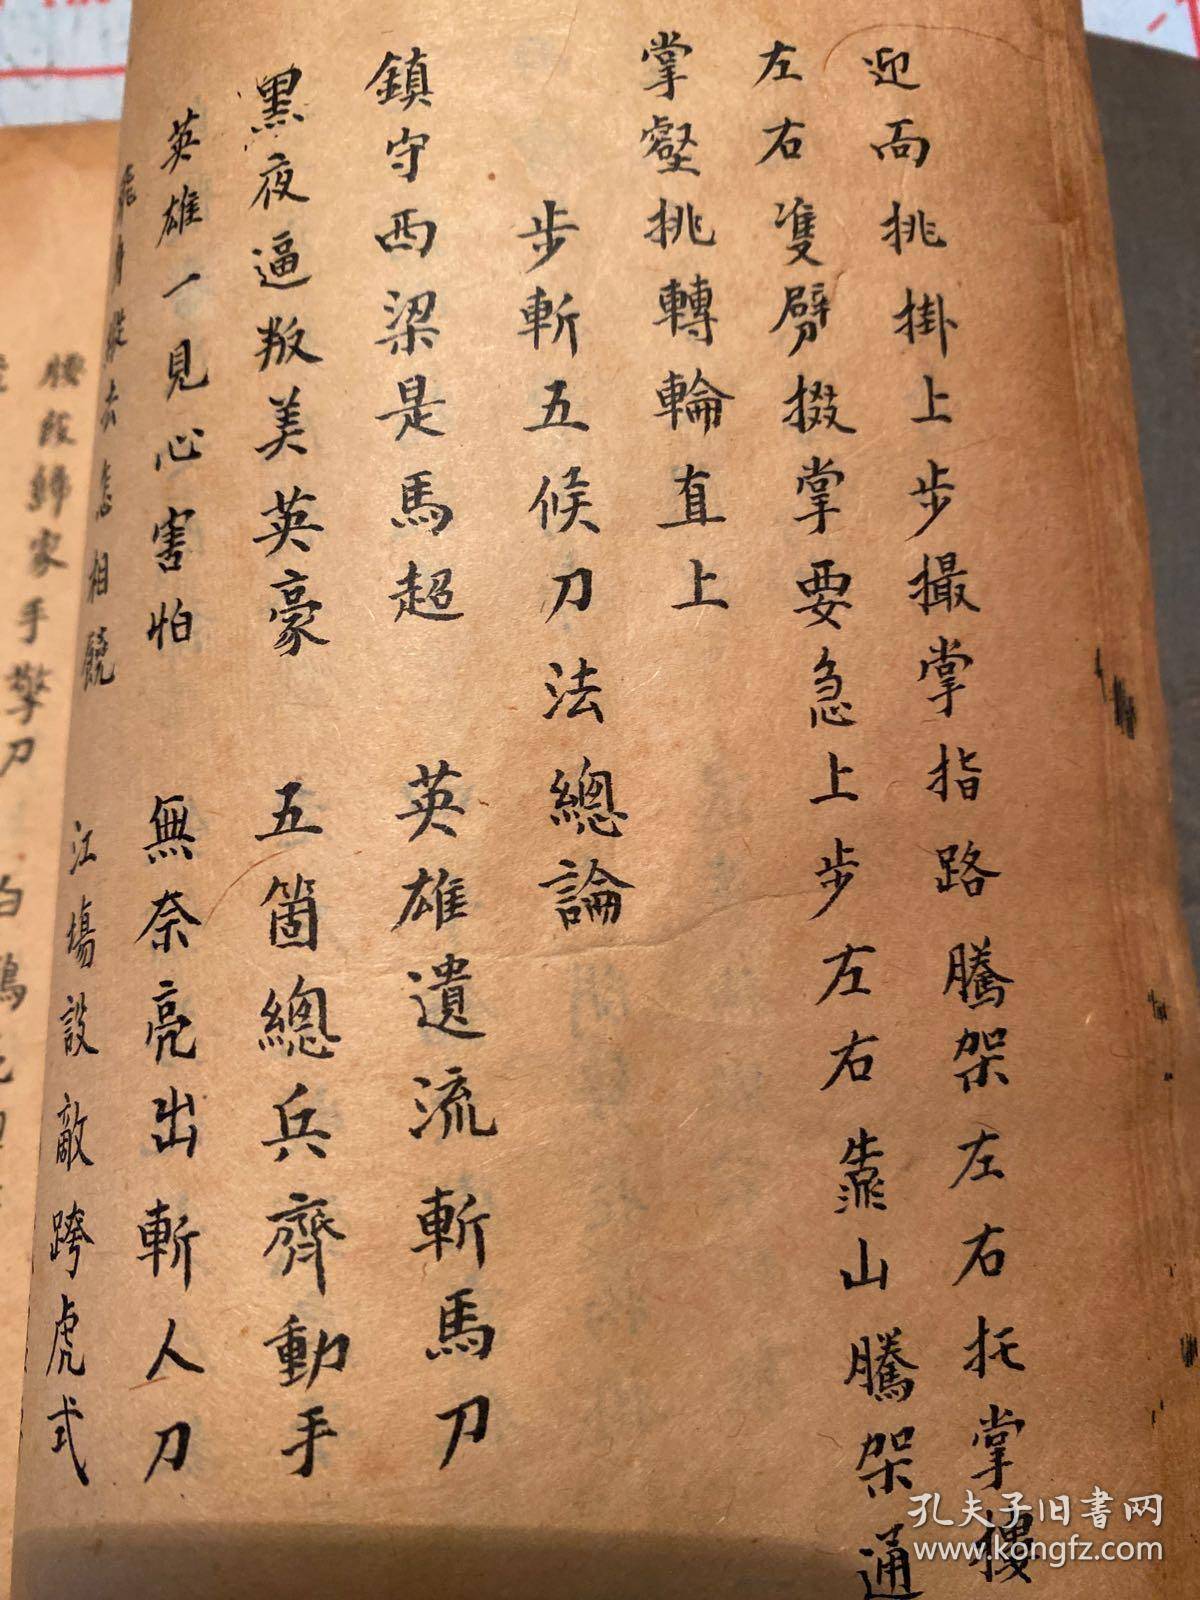 迎面挑掛上步撮掌指路騰架左右托掌摟
左右雙劈掇掌要急上步左右靠山騰架通
掌壑挑轉輪直上
步斬五候刀法總論
鎮守西梁是馬超 英雄遺流斬馬刀
黑夜逼叛美英豪 五箇總兵齊動手
英雄一見心害怕 無奈亮出斬人刀
相饒 江塲設敵跨虎式
腰段歸家手擎刀
孔夫子旧书网
www.kongfz.com